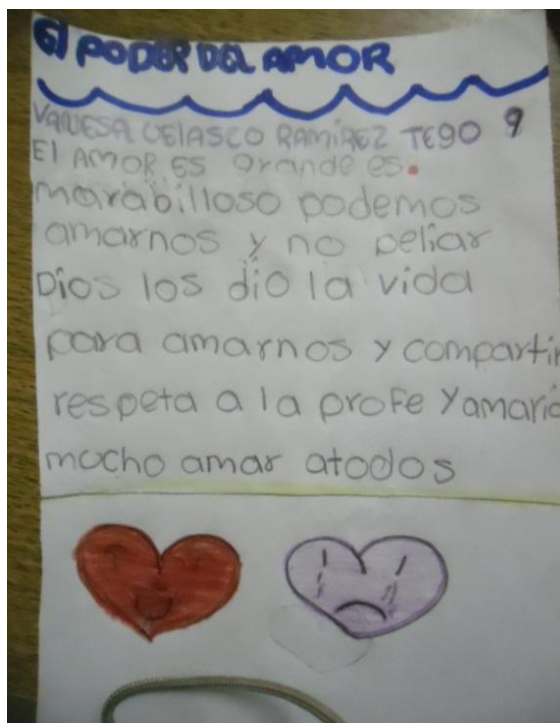 El PODER DEL AMOR
VANESA VELASCO RAMIREZ TEGO 9
El AMOR ES grande es.
marabilloso podemos
amarnos y no peliar
Dios los dio la vida
para amarnos y compartir
respeta a la profe Yamaria
mucho amar atodos